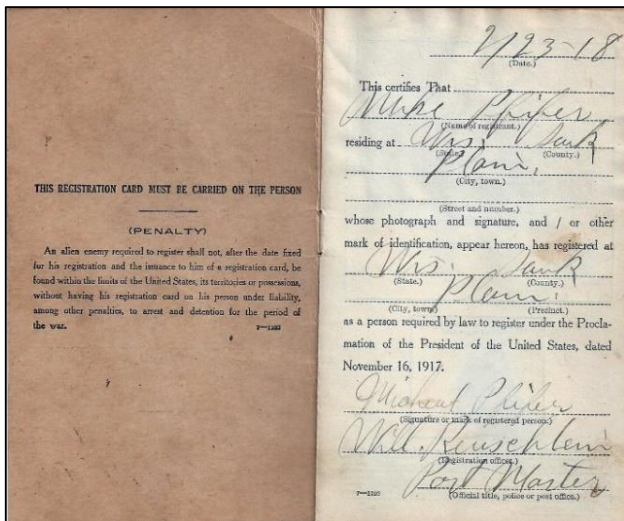 THIS REGISTRATION CARD MUST BE CARRIED ON THE PERSON
(PENALTY)
An alien enemy required to register shall not, after the date fixed
for his registration and the issuance to him of a registration card, be
found within the limits of the United States, its territories or possessions,
without having his registration card on his person under liability,
among other penalties, to arrest and detention for the period of
the war. 7—1132
2/23-18
(Date.)
This certifies That
Mike Pfifer
(Name of registrant.)
residing at Wis. Sauk
(State.) (County.)
Plain,
(City, town.)
(Street and number.)
whose photograph and signature, and / or other
mark of identification, appear hereon, has registered at
Wis. Sauk
(State.) (County.)
Plain.
(City, town) (Precinct.)
as a person required by law to register under the Procla-
mation of the President of the United States, dated
November 16, 1917.
Michael Pfifer
(Signature or mark of registered person.)
Will. Reuschlein
(Registration officer.)
Post Master
7—1132 (Official title, police or post office.)